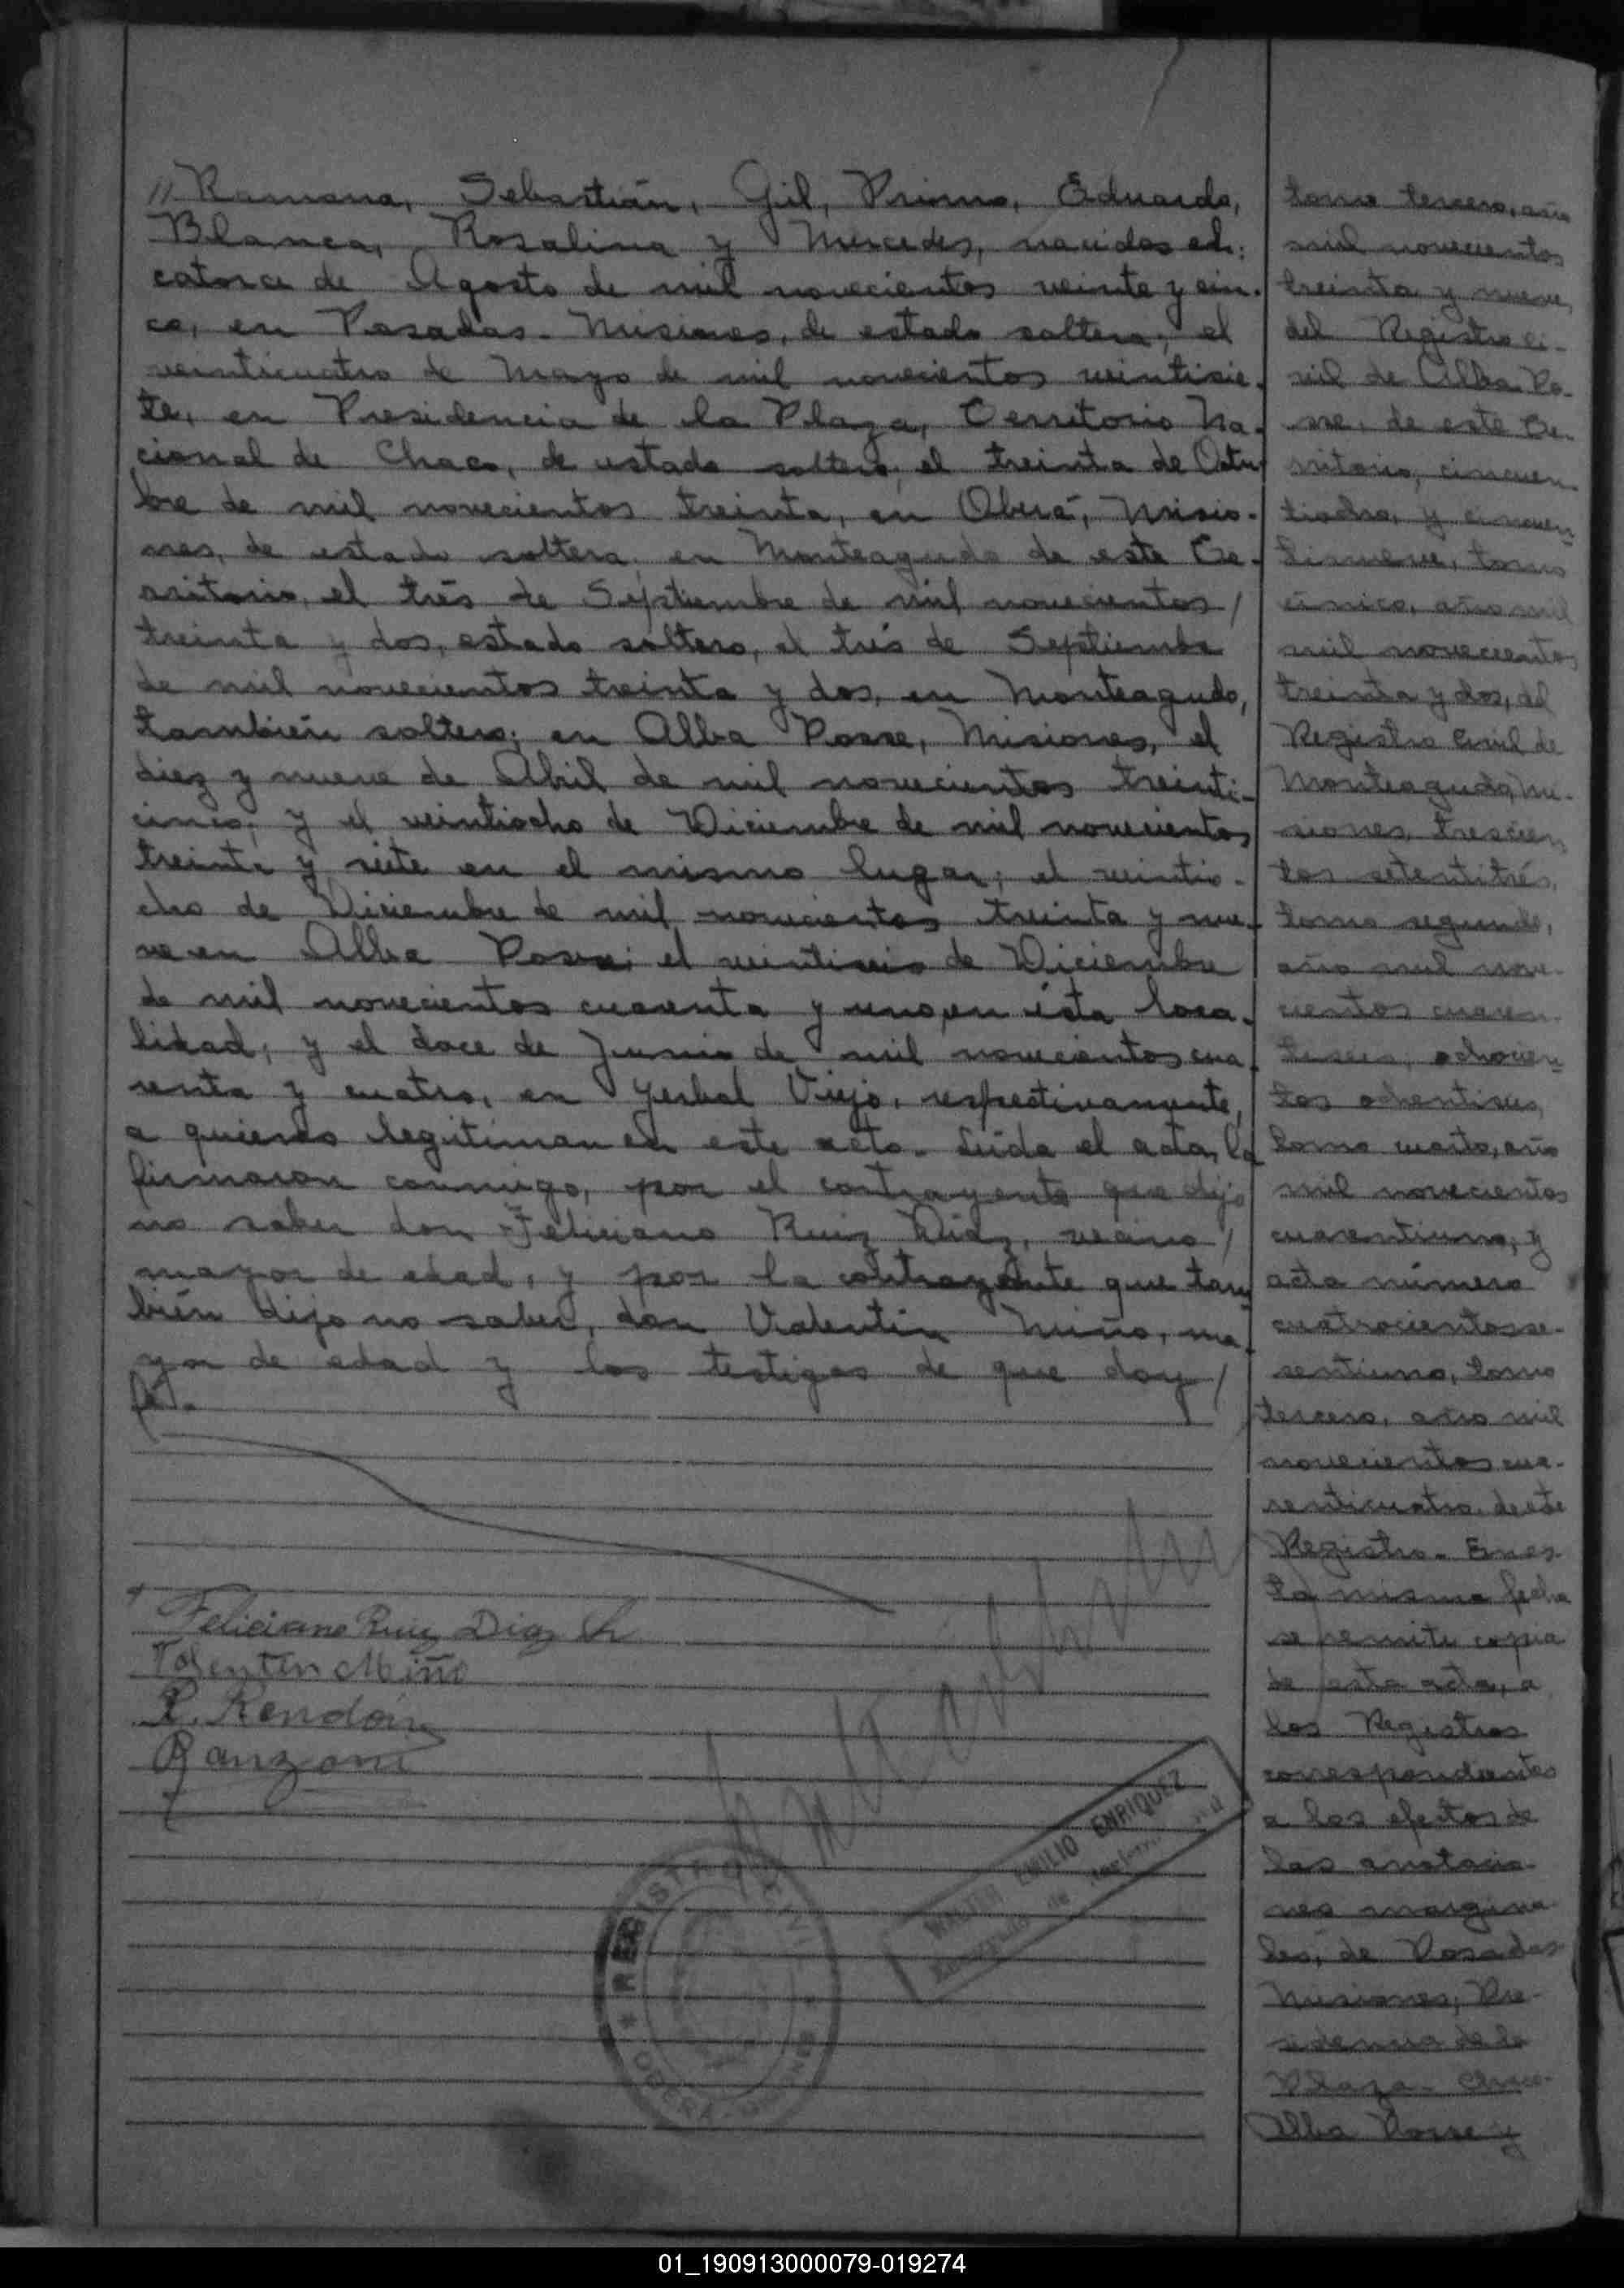 // Ramona, Sebastián, Gil, Primo, Eduardo,
Blanca, Rosalina y Mercedes, nacidos el:
catorce de Agosto de mil novecientos veinte y cin-
co, en Posadas - Misiones, de estado soltera; el
veinticuatro de Mayo de mil novecientos veintisie-
te, en Presidencia de la Plaza, Territorio Na-
cional de Chaco, de estado soltero; el treinta de Octu-
bre de mil novecientos treinta, en Oberá, Misio-
nes, de estado soltera; en Monteagudo de este Te-
rritorio, el trés de Septiembre de mil novecientos /
treinta y dos, estado soltero, el trés de Septiembre
de mil novecientos treinta y dos, en Monteagudo,
también soltero; en Alba Posse, Misiones, el
diez y nueve de Abril de mil novecientos treinti-
cinco; y el veintiocho de Diciembre de mil novecientos
treinta y siete en el mismo lugar; el veintio-
cho de Diciembre de mil novecientos treinta y nue-
ve en Alba Posse; el veintiseis de Diciembre
de mil novecientos cuarenta y uno, en ésta loca-
lidad; y el doce de Junio de mil novecientos cua-
renta y cuatro, en Yerbal Viejo, respectivamente,
a quienes legitiman en este acto. Leída el acta, la
firmaron conmigo, por el contrayente que dijo
no saber don Feliciano Ruiz Diaz, vecino /
mayor de edad, y por la contrayente que tam-
bién dijo no saber, don Valentin Miño, ma-
yor de edad y los testigos de que doy /
fé.
Feliciano Ruiz Diaz
Valentin Miño
R. Rendón
Ranzoni
WALTER EMILIO ENRIQUEZ
Encargado de
* REGISTRO CIVIL *
OBERA - MISIONES
tomo tercero, año
mil novecientos
treinta y nueve,
del Registro Ci-
vil de Alba Po-
sse, de este Te-
rritorio, cincuen-
tiocho, y cincuen-
tinueve, tomo
único, año mil
mil novecientos
treinta y dos, del
Registro Civil de
Monteagudo, Mi-
siones, trescien-
tos setentitrés,
tomo segundo,
año mil nove-
cientos cuaren-
tiseis, ochocien-
tos ochentiseis,
tomo cuarto, año
mil novecientos
cuarentiuno, y
acta número
cuatrocientos se-
sentiuno, tomo
tercero, año mil
novecientos cua-
renticuatro de este
Registro. En es-
ta misma fecha
se remite copia
de esta acta, a
los Registros
correspondientes
a los efectos de
las anotacio-
nes margina-
les, de Posadas
Misiones, Pre-
sidencia de la
Plaza - Chaco-
Alba Posse y
01_190913000079-019274